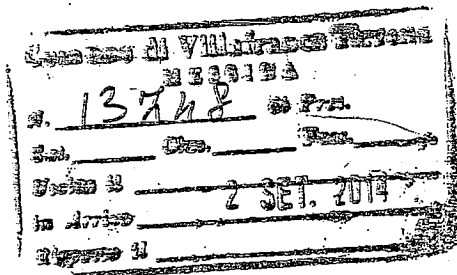 Comune di Villafranca Tirrena
MESSINA
N. 13748 di Prot.
Cat. Clas. Fasc.
2 SET. 2014
In Arrivo
Risposto il